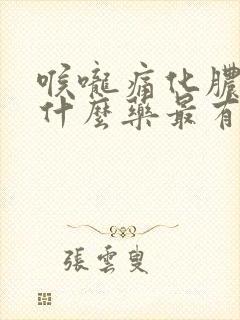 喉嚨痛化膿
什麼藥最有
張雲叟